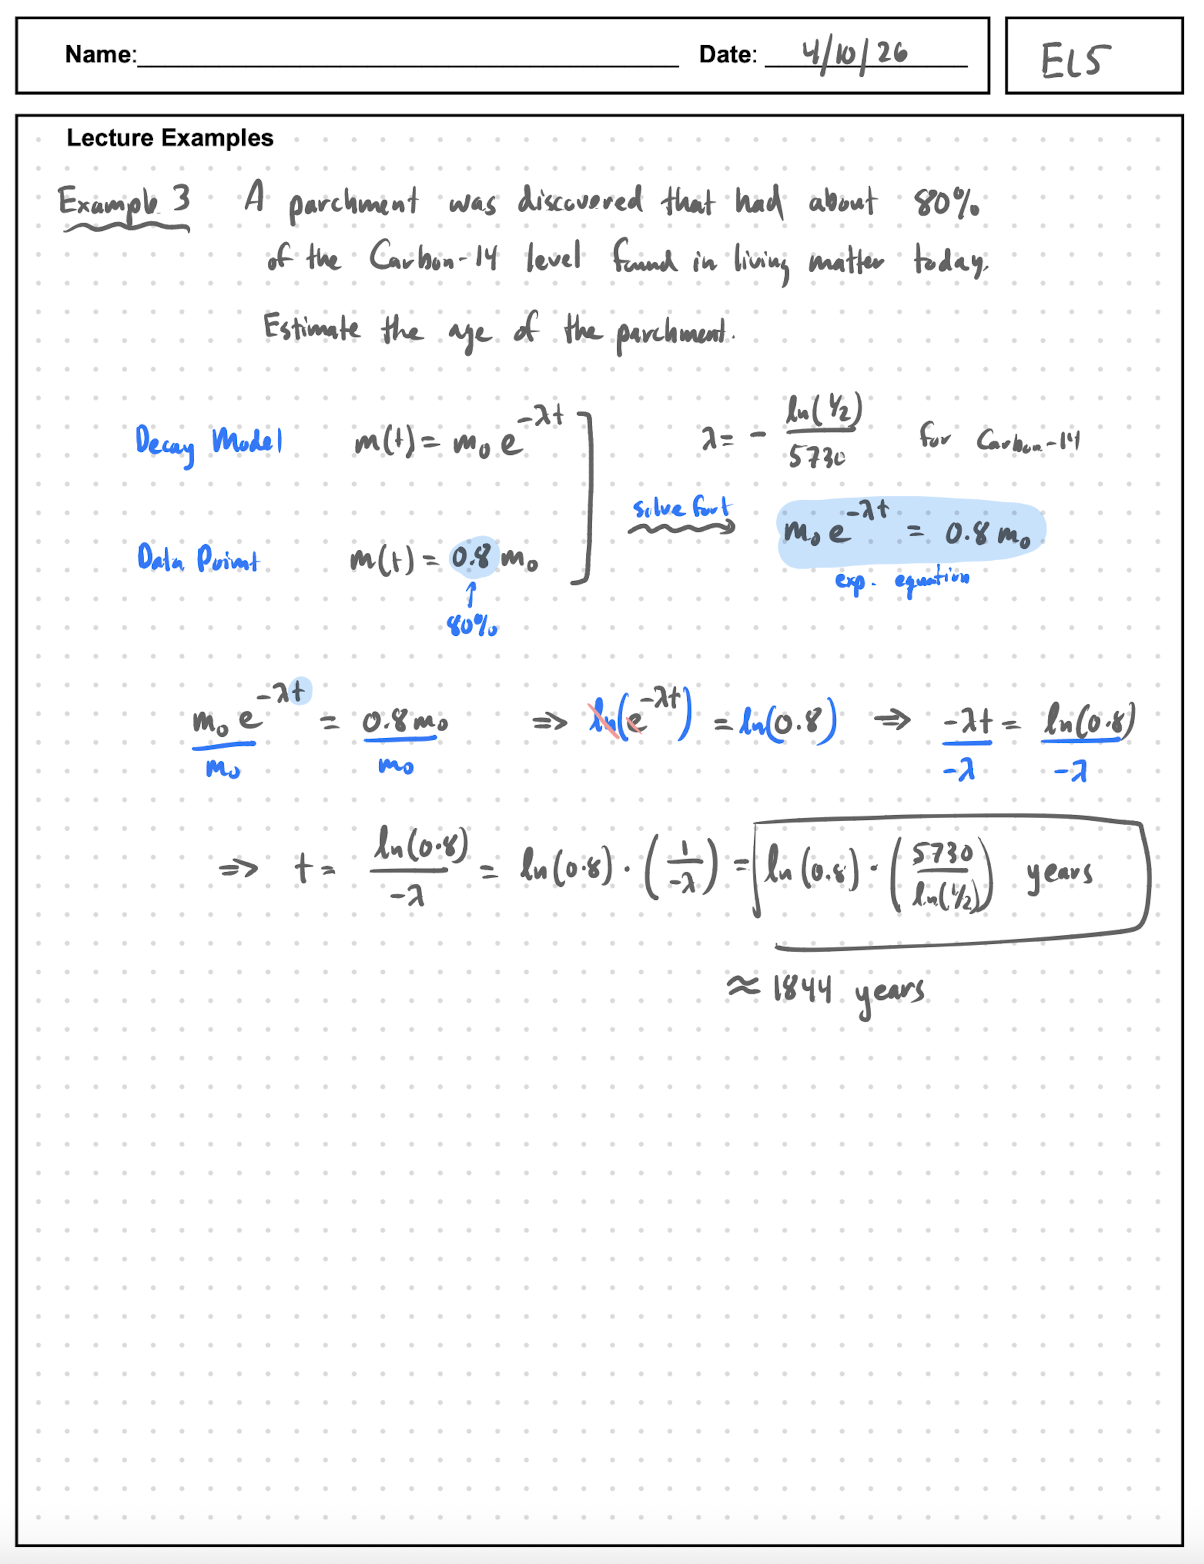 Name: Date: 4/10/26 EL5
Lecture Examples
Example 3 A parchment was discovered that had about 80%
of the Carbon-14 level found in living matter today.
Estimate the age of the parchment.
Decay Model m(t) = m₀ e^(-λt) λ = - ln(1/2)/5730 for Carbon-14
solve for t m₀ e^(-λt) = 0.8 m₀
Data Point m(t) = 0.8 m₀ exp. equation
↑
80%
m₀ e^(-λt)/m₀ = 0.8 m₀/m₀ ⇒ ln(e^(-λt)) = ln(0.8) ⇒ -λt/-λ = ln(0.8)/-λ
⇒ t = ln(0.8)/-λ = ln(0.8) · (1/-λ) = ln(0.8) · (5730/ln(1/2)) years
≈ 1844 years